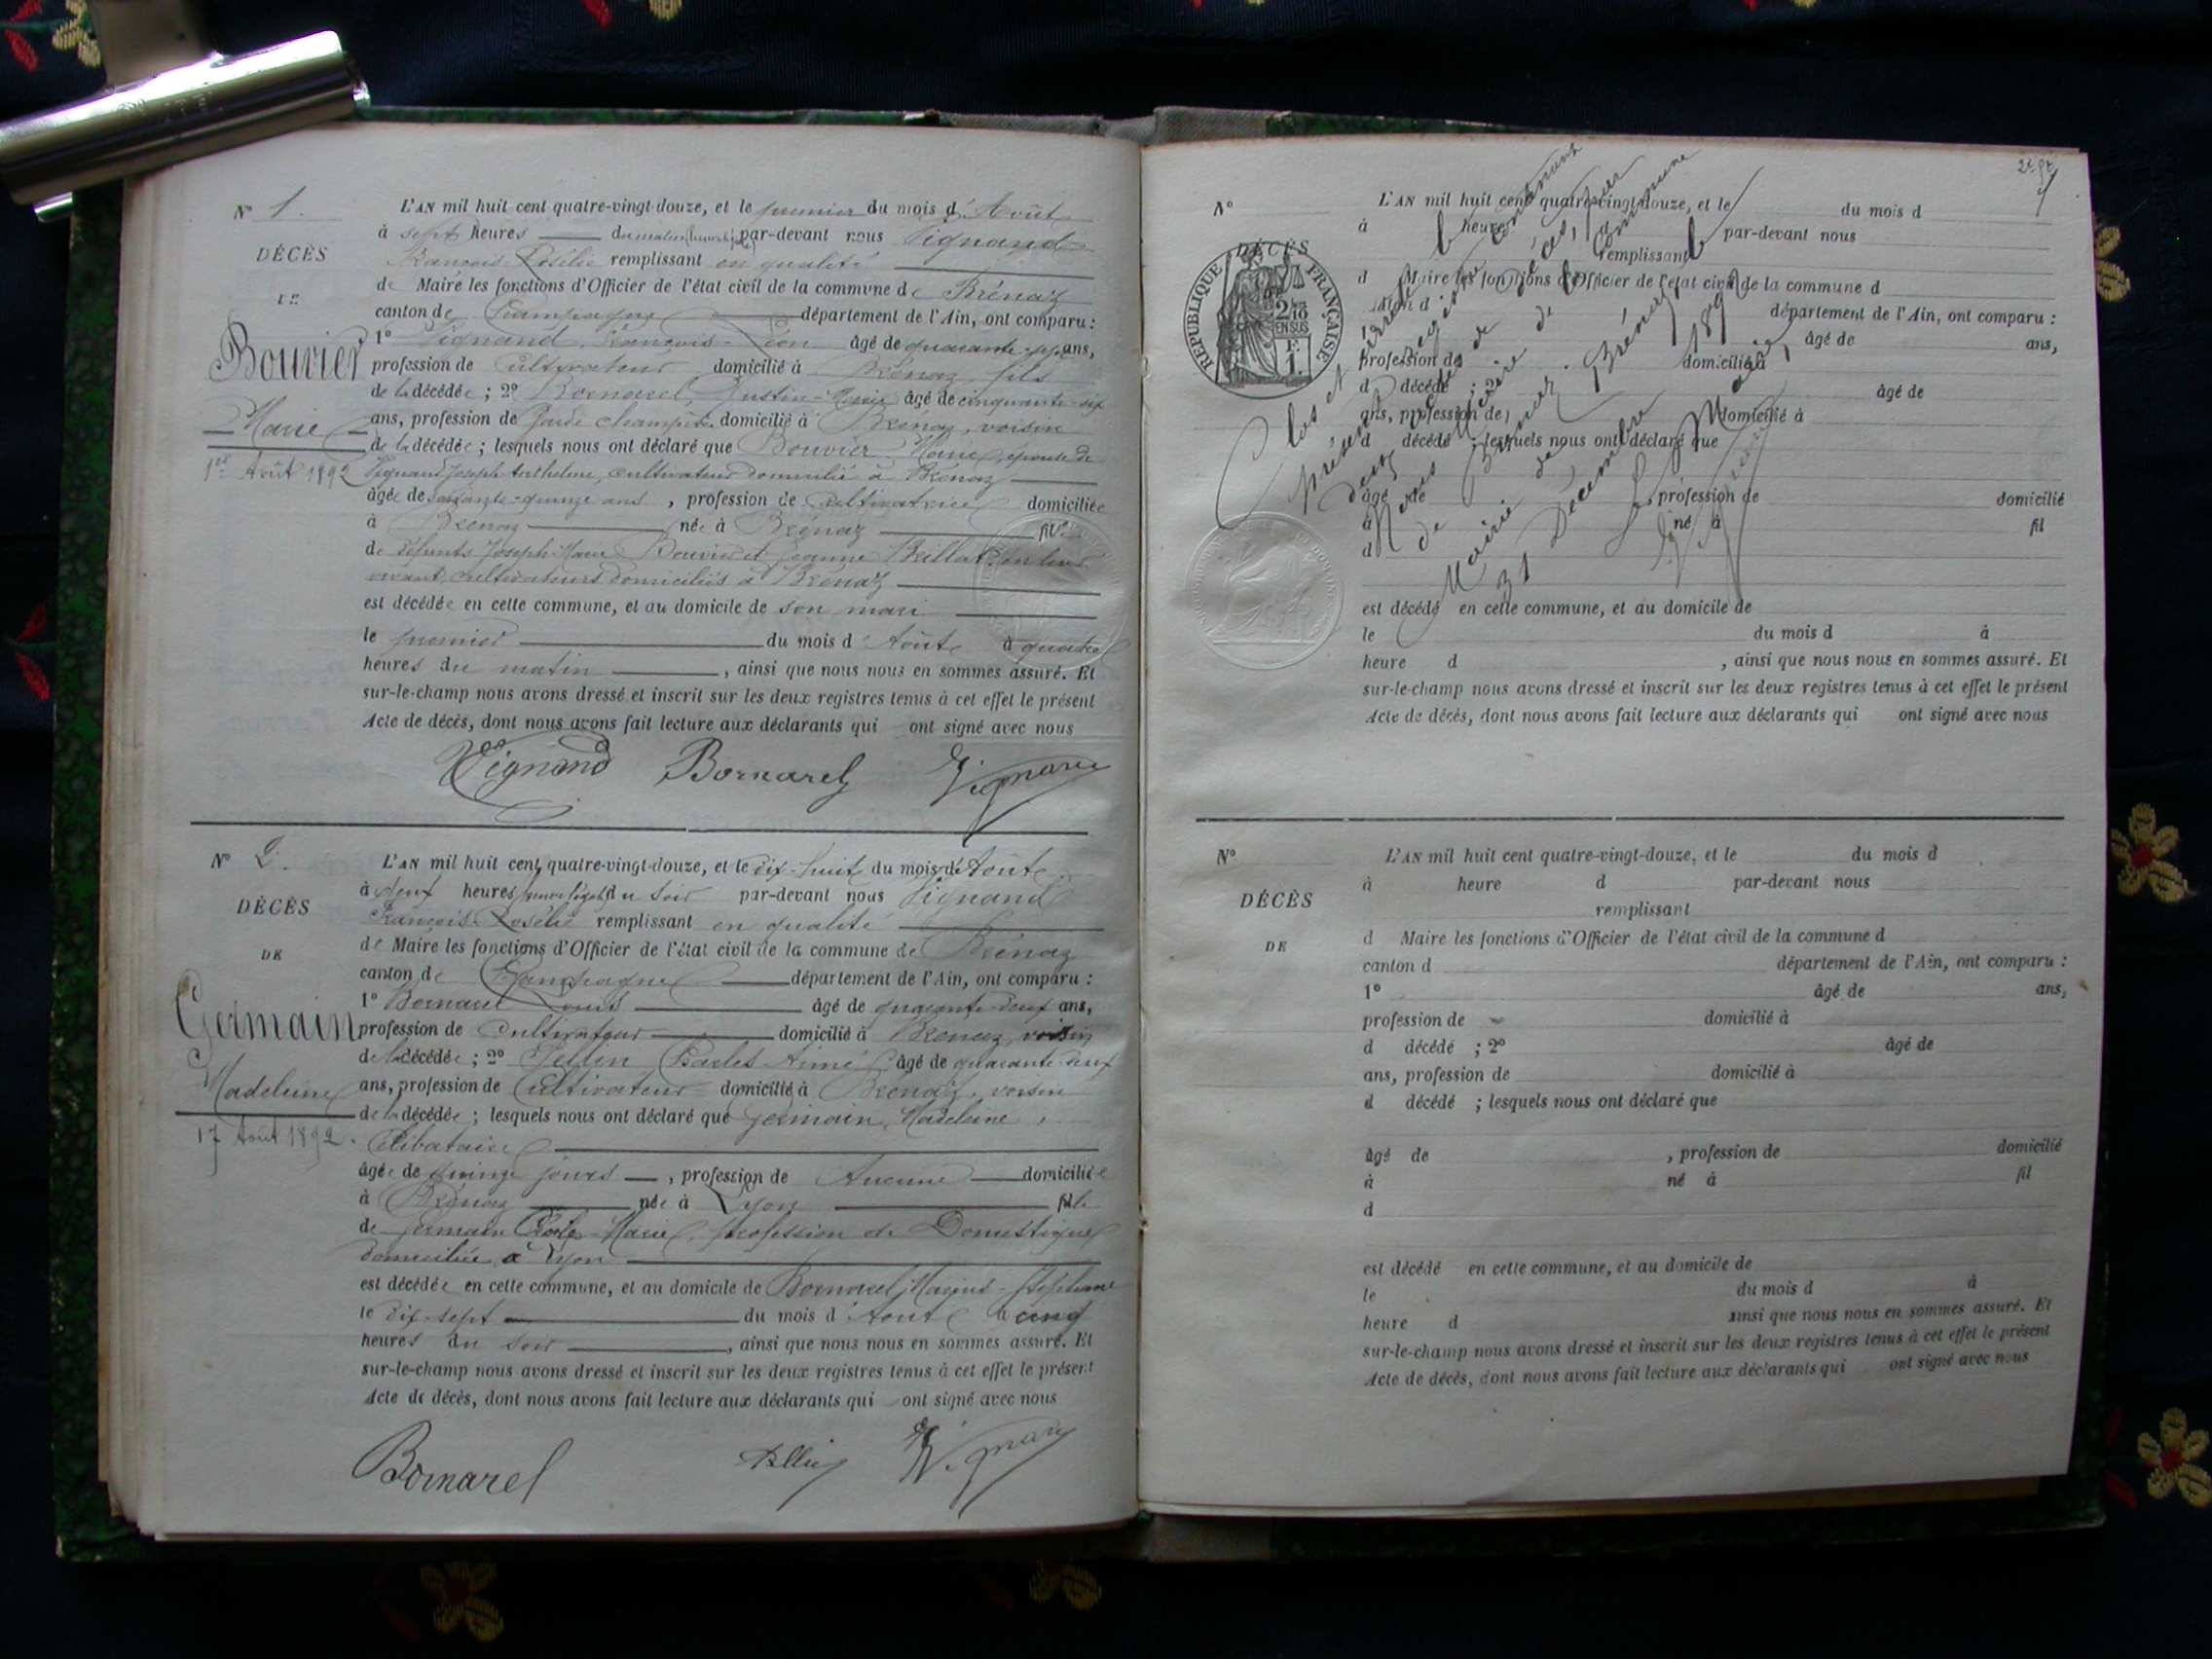 N° 1.
DÉCÈS
DE
Bouvier
Marie
1er Août 1892
L'AN mil huit cent quatre-vingt-douze, et le premier du mois d'Août
à sept heures du matin par-devant nous Vignand
François-Rosélie remplissant en qualité
de Maire les fonctions d'Officier de l'état civil de la commune de Brénaz
canton de Champagne département de l'Ain, ont comparu :
1° Vignand, François-Léon âgé de quarante-sept ans,
profession de Cultivateur domicilié à Brénaz, fils
de la décédée ; 2° Bornarel, Justin-Marie âgé de cinquante-six
ans, profession de Garde champêtre domicilié à Brénaz, voisin
de la décédée ; lesquels nous ont déclaré que Bouvier Marie, épouse de
Vignand Joseph Anthelme, cultivateur domicilié à Brénaz
âgée de soixante-quinze ans , profession de Cultivatrice domiciliée
à Brénaz née à Brénaz fille
de défunts Joseph-Marie Bouvier et Jeanne Brillat, en leur
vivant, cultivateurs domiciliés à Brénaz
est décédée en cette commune, et au domicile de son mari
le premier du mois d'Août à quatre
heures du matin , ainsi que nous nous en sommes assuré. Et
sur-le-champ nous avons dressé et inscrit sur les deux registres tenus à cet effet le présent
Acte de décès, dont nous avons fait lecture aux déclarants qui ont signé avec nous
Vignand Bornarel Vignand
N° 2.
DÉCÈS
DE
Germain
Madeleine
17 Août 1892.
L'AN mil huit cent quatre-vingt-douze, et le dix-huit du mois d'Août
à neuf heures (heure légale) du soir par-devant nous Vignand
François-Rosélie remplissant en qualité
de Maire les fonctions d'Officier de l'état civil de la commune de Brénaz
canton de Champagne département de l'Ain, ont comparu :
1° Bornarel Louis âgé de quarante-deux ans,
profession de Cultivateur domicilié à Brénaz, voisin
de la décédée ; 2° Charles Aimé âgé de quarante-neuf
ans, profession de Cultivateur domicilié à Brénaz, voisin
de la décédée ; lesquels nous ont déclaré que Germain, Madeleine,
Célibataire
âgée de quinze jours , profession de Aucune domiciliée
à Brénaz née à Lyon fille
de Germain Marie, profession de Domestique
domiciliée à Lyon
est décédée en cette commune, et au domicile de Bornarel, Marius-
le dix-sept du mois d'Août à cinq
heures du soir , ainsi que nous nous en sommes assuré. Et
sur-le-champ nous avons dressé et inscrit sur les deux registres tenus à cet effet le présent
Acte de décès, dont nous avons fait lecture aux déclarants qui ont signé avec nous
Bornarel Vignand
N°
RÉPUBLIQUE FRANÇAISE
DÉCÈS
2/10
EN SUS
F.
1.
L'AN mil huit cent quatre-vingt-douze, et le du mois d
à heure par-devant nous
remplissant
d Maire les fonctions d'Officier de l'état civil de la commune d
canton d département de l'Ain, ont comparu :
âgé de ans,
profession de domicilié à
d décédé ; 2° âgé de
ans, profession de domicilié à
d décédé ; lesquels nous ont déclaré que
âgé de , profession de domicilié
à né à fil
d
est décédé en cette commune, et au domicile de
le du mois d à
heure d , ainsi que nous nous en sommes assuré. Et
sur-le-champ nous avons dressé et inscrit sur les deux registres tenus à cet effet le présent
Acte de décès, dont nous avons fait lecture aux déclarants qui ont signé avec nous
Clos et arrêté le
présent registre contenant
deux actes de décès, par
Nous Maire de la Commune
de Brénaz.
Mairie de Brénaz le
31 Décembre 1892
Le Maire,
N°
DÉCÈS
DE
L'AN mil huit cent quatre-vingt-douze, et le du mois d
à heure d par-devant nous
remplissant
d Maire les fonctions d'Officier de l'état civil de la commune d
canton d département de l'Ain, ont comparu :
1° âgé de ans,
profession de domicilié à
d décédé ; 2° âgé de
ans, profession de domicilié à
d décédé ; lesquels nous ont déclaré que
âgé de , profession de domicilié
à né à fil
d
est décédé en cette commune, et au domicile de
le du mois d à
heure d ainsi que nous nous en sommes assuré. Et
sur-le-champ nous avons dressé et inscrit sur les deux registres tenus à cet effet le présent
Acte de décès, dont nous avons fait lecture aux déclarants qui ont signé avec nous